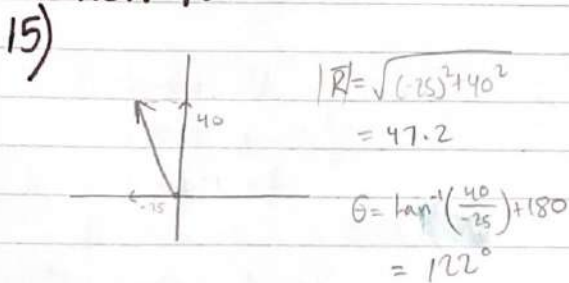 15)
40
-25
|R| = √(-25)²+40²
= 47.2
θ = tan⁻¹(40/-25)+180
= 122°